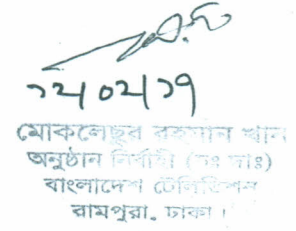 ১২/০২/১৭
মোকলেছুর রহমান খান
অনুষ্ঠান নির্বাহী (চঃ দাঃ)
বাংলাদেশ টেলিভিশন
রামপুরা, ঢাকা।